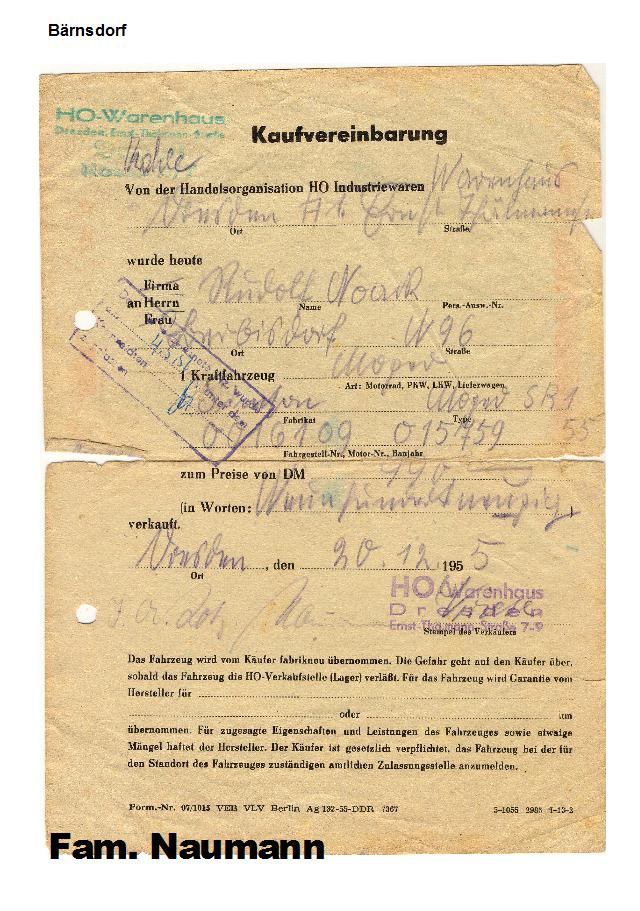 Bärnsdorf
HO-Warenhaus
Dresden, Ernst-Thälmann-Straße
Kaufvereinbarung
Von der Handelsorganisation HO Industriewaren Warenhaus
Dresden A 1 Ernst Thälmann
Ort Straße
wurde heute
Firma
an Herrn Rudolf Noack
Frau Name Pers.-Ausw.-Nr.
Oberbisdorf N 96
Ort Straße
1 Kraftfahrzeug Moped
Art: Motorrad, PKW, LKW, Lieferwagen
Moped SR 1
Fabrikat Type
0016109 015759 55
Fahrgestell-Nr., Motor-Nr., Baujahr
zum Preise von DM 990
(in Worten: Neunhundertneunzig)
verkauft.
Dresden, den 20.12.1955
Ort
HO Warenhaus
Dresden
Ernst-Thälmann-Straße 7-9
Stempel des Verkäufers
Das Fahrzeug wird vom Käufer fabrikneu übernommen. Die Gefahr geht auf den Käufer über,
sobald das Fahrzeug die HO-Verkaufstelle (Lager) verläßt. Für das Fahrzeug wird Garantie vom
Hersteller für
oder km
übernommen. Für zugesagte Eigenschaften und Leistungen des Fahrzeuges sowie etwaige
Mängel haftet der Hersteller. Der Käufer ist gesetzlich verpflichtet, das Fahrzeug bei der für
den Standort des Fahrzeuges zuständigen amtlichen Zulassungsstelle anzumelden.
Form.-Nr. 07/1015 VEB VLV Berlin Ag 132-55-DDR 7367
Fam. Naumann